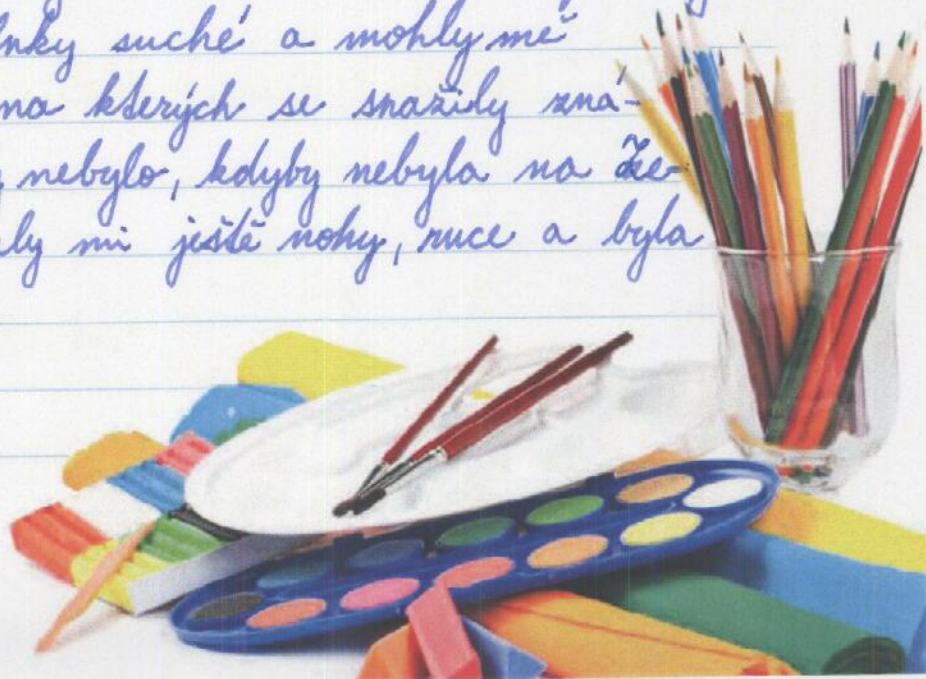 lnky suché a mohly mě
na kterých se snažily zná-
nebylo, kdyby nebyla na že-
ly mi ještě nohy, ruce a byla